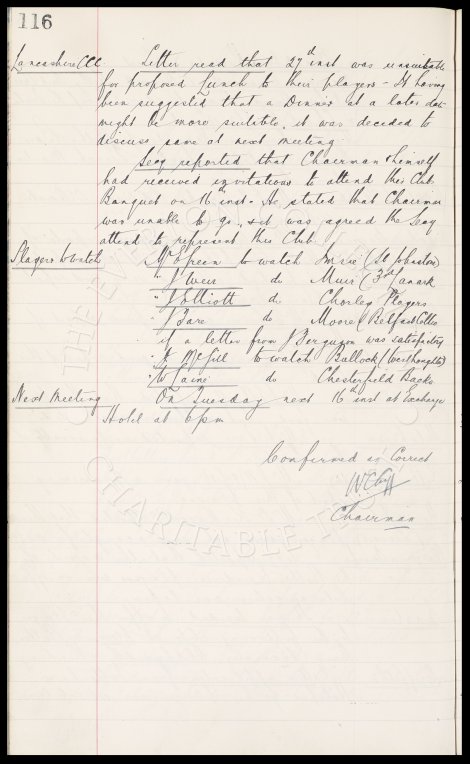 116
Lancashire CCC Letter read that 27th inst was unsuitable
for proposed Lunch to their players - It having
been suggested that a Dinner at a later date
might be more suitable, it was decided to
discuss same at next meeting
Secy reported that Chairman & himself
had received invitations to attend this Club
Banquet on 16th inst. He stated that Chairman
was unable to go, & it was agreed the Secy
attend to represent this Club.
Players to watch Mr Green to watch (St Johnston)
" J Weir do Muir (3rd Lanark
" J Elliott do Chorley Players
" J Bare do Moore (Belfast Celtic
if a letter from J Ferguson was satisfactory
" McGill to watch Bullock (
" W Laine do Chesterfield Backs
Next Meeting On Tuesday next 16th inst at Exchange
Hotel at 6pm
Confirmed as Correct
Chairman
THE EVERTON
CHARITABLE